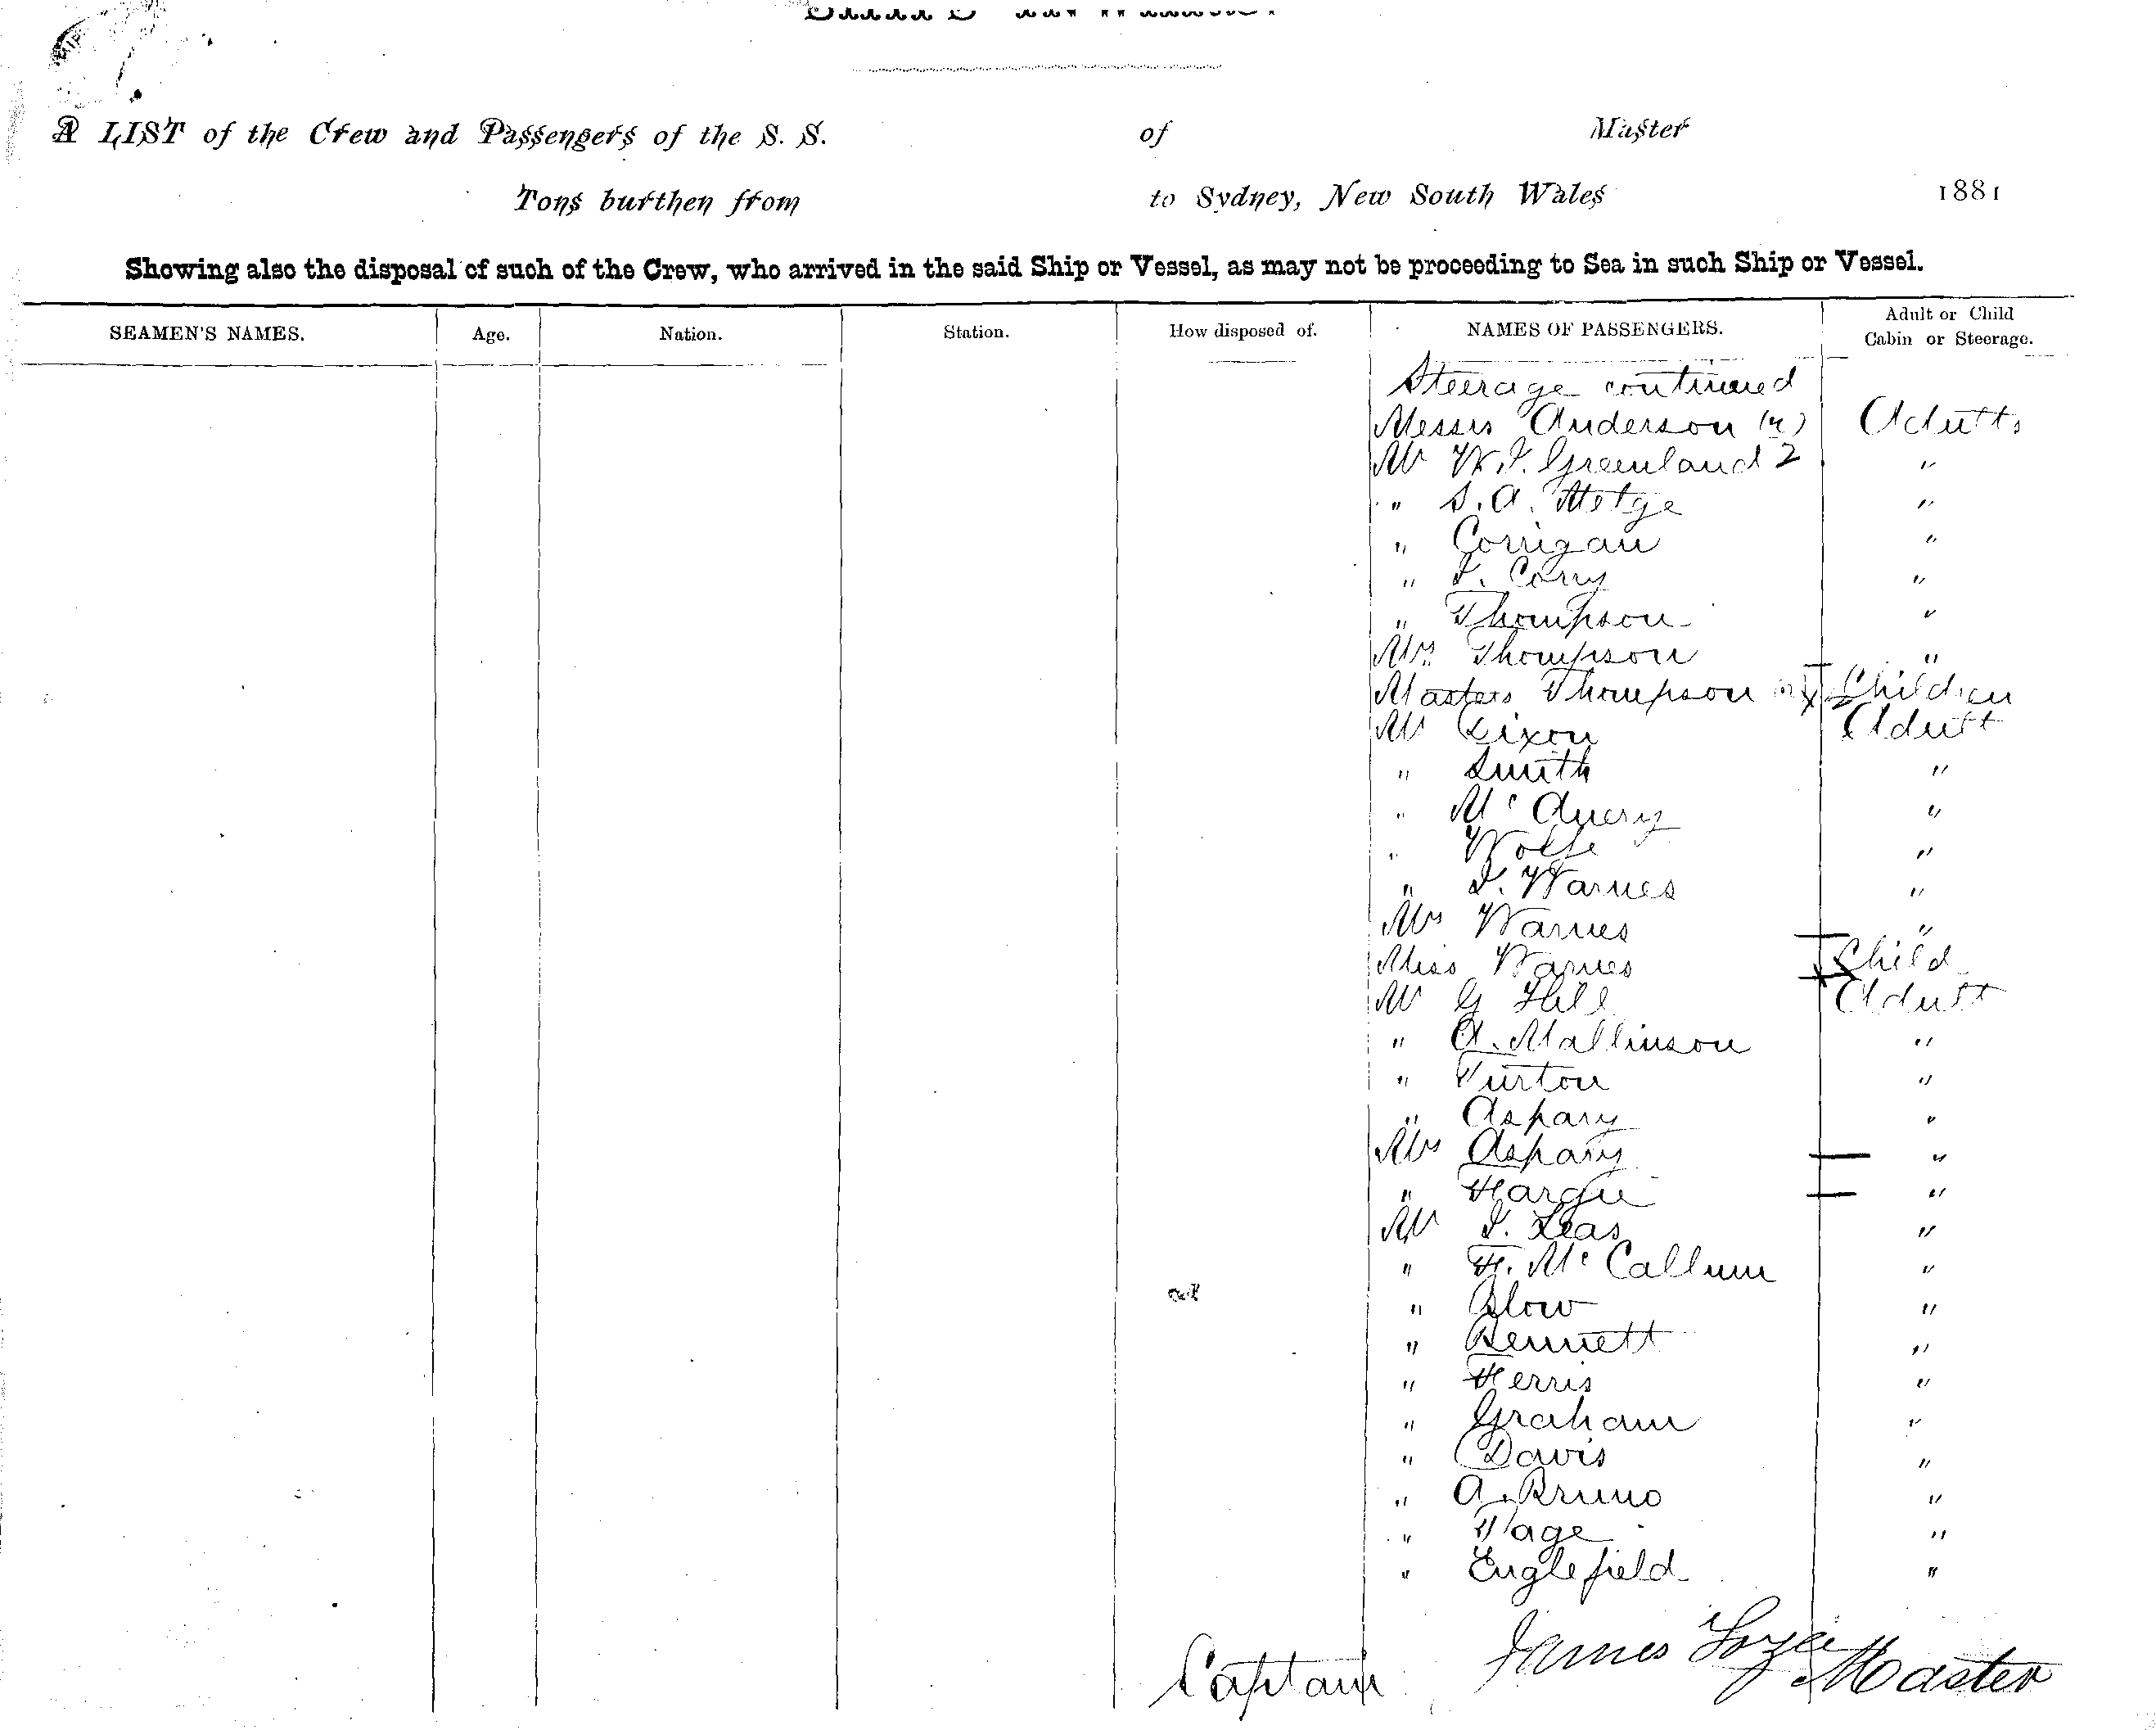 A LIST of the Crew and Passengers of the S. S. of Master
Tons burthen from to Sydney, New South Wales 1881
Showing also the disposal of such of the Crew, who arrived in the said Ship or Vessel, as may not be proceeding to Sea in such Ship or Vessel.
SEAMEN'S NAMES. Age. Nation. Station. How disposed of. NAMES OF PASSENGERS. Adult or Child
Cabin or Steerage.
Steerage continued
Messrs Anderson Adults
Mr W. J. Greenland 2 "
" S. A. Metge "
" Corrigan "
" Corry "
" Thompson "
Mrs Thompson "
Masters Thompson Children
Mr Dixon Adult
" Smith "
" Mc "
" Wolfe "
" Warnes "
Mrs Warnes "
Miss Warnes Child
Mr G Hill Adult
" A. Mallinson "
" Turton "
" Aspary "
Mrs Aspary "
" "
Mr Leas "
" H. Mc Callum "
" Blow "
" Bennett "
" Herris "
" Graham "
" Davis "
" A. Bruno "
" "
" Englefield "
Captain James Master